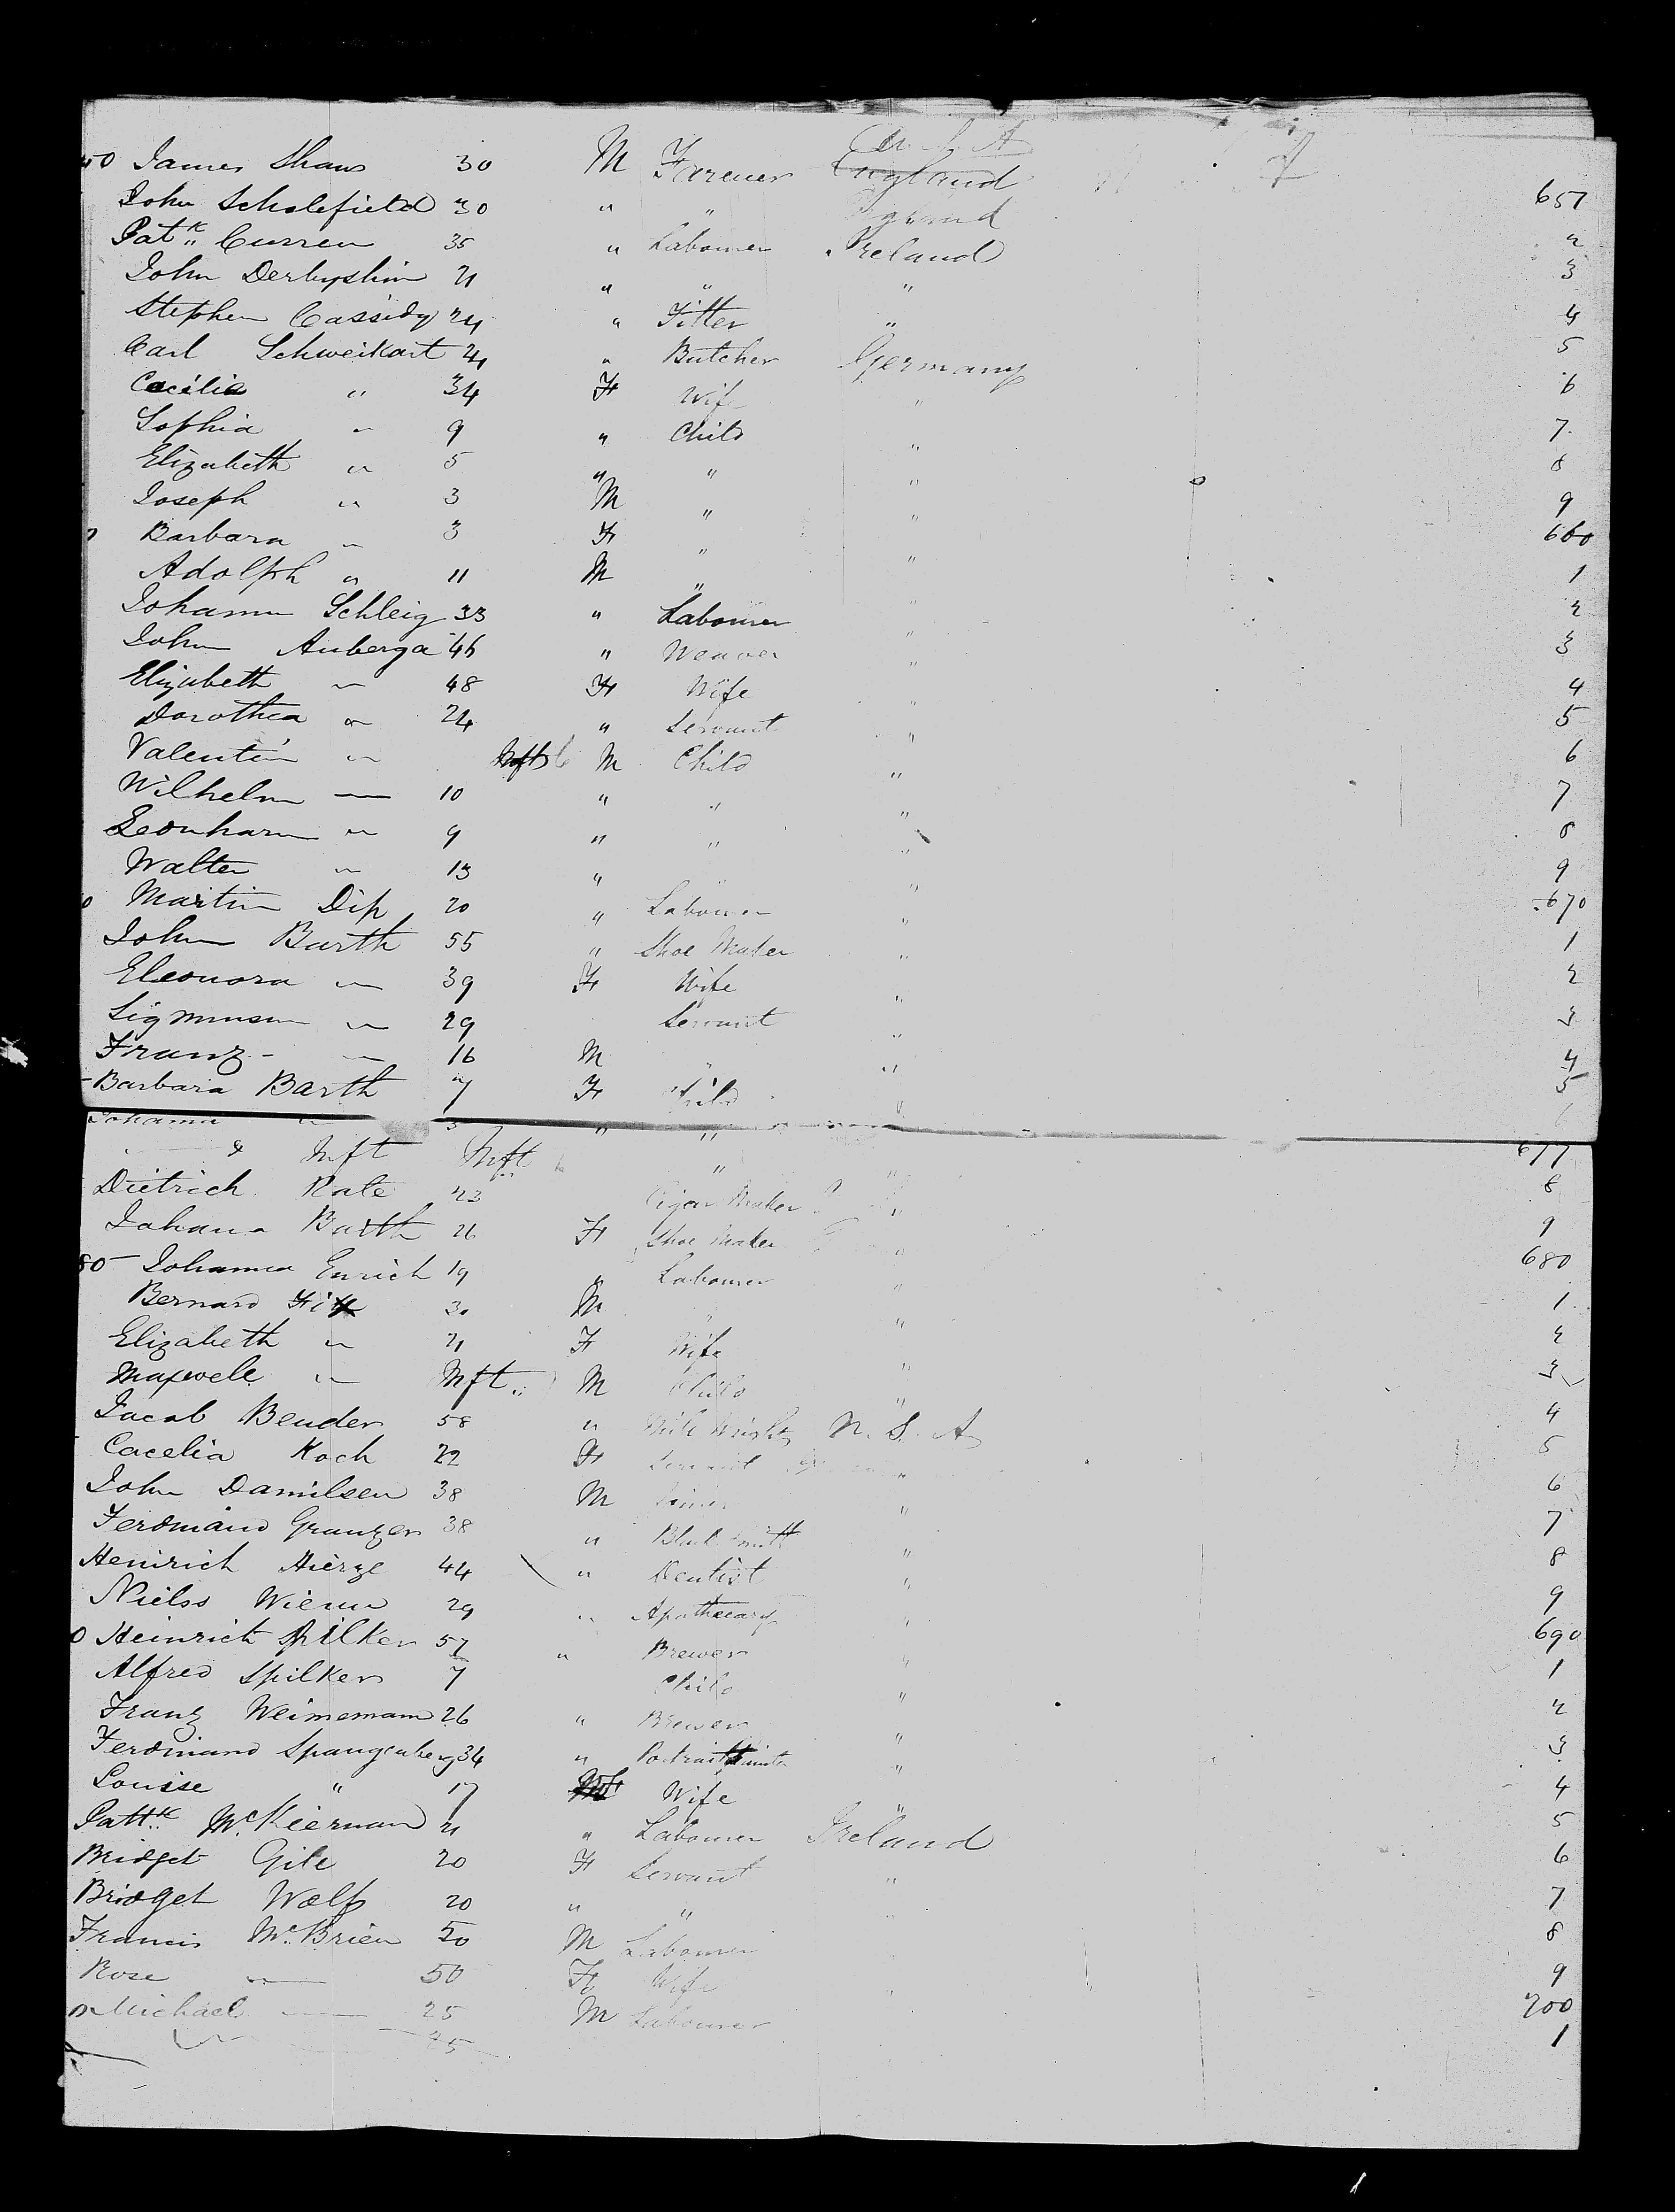 U. S. A
James Shaw 30 M Farmer England
John Scholefield 30 " " England 651
Pat.k Curren 35 " Labourer Ireland 2
John Derbyshire 21 " " " 3
Stephen Cassidy 24 " Fitter " 4
Carl Schweikart 41 " Butcher Germany 5
Cacilia " 34 F Wife " 6
Sophia " 9 " Child " 7
Elizabeth " 5 " " " 8
Joseph " 3 M " " 9
Barbara " 3 F " " 660
Adolph " 11 M " " 1
Johann Schleig 33 " Labourer " 2
John Auberga 46 " Weaver " 3
Elizabeth " 48 F Wife " 4
Dorothea " 24 " Servant " 5
Valentin " Inft M Child " 6
Wilhelm " 10 " " " 7
Leonharn " 9 " " " 8
Walter " 13 " " " 9
Martin Dip 20 " Labourer " 670
John Barth 55 " Shoe Maker " 1
Eleonora " 39 F Wife " 2
Sigmusn " 29 Servant " 3
Franz " 16 M " " 4
Barbara Barth 7 F Child " 5
Johanna " " "
& Inft Inft " 677
Dietrich Rate 23 Cigar Maker " 8
Johana Barth 26 F Shoe Maker " 9
80 Johanna Enrich 19 " Labourer " 680
Bernard 30 M " " 1
Elizabeth " 21 F Wife " 2
Maxwele " Inft M Child " 3
Jacob Bender 58 " Mill Wright U. S. A 4
Cacelia Koch 22 F Servant " 5
John Damilsen 38 M " 6
Ferdinand Granzer 38 " Black Smith " 7
Heinrich Hierze 44 " Dentist " 8
Nielss Wienn 29 " Apothecary " 9
0 Heinrich Spilker 57 " Brewer " 690
Alfred Spilker 7 Child " 1
Franz Weinemann 26 " Brewer " 2
Ferdinand Spangenberg 34 " Portrait Painter " 3
Louise " 17 Wife " 4
Patt.k McKiernan 21 " Labourer Ireland 5
Bridget Gile 20 F Servant " 6
Bridget Wolf 20 " " " 7
Francis McBrien 50 M Labourer 8
Rose " 50 F Wife 9
Michael " 25 M Labourer 700
25 1